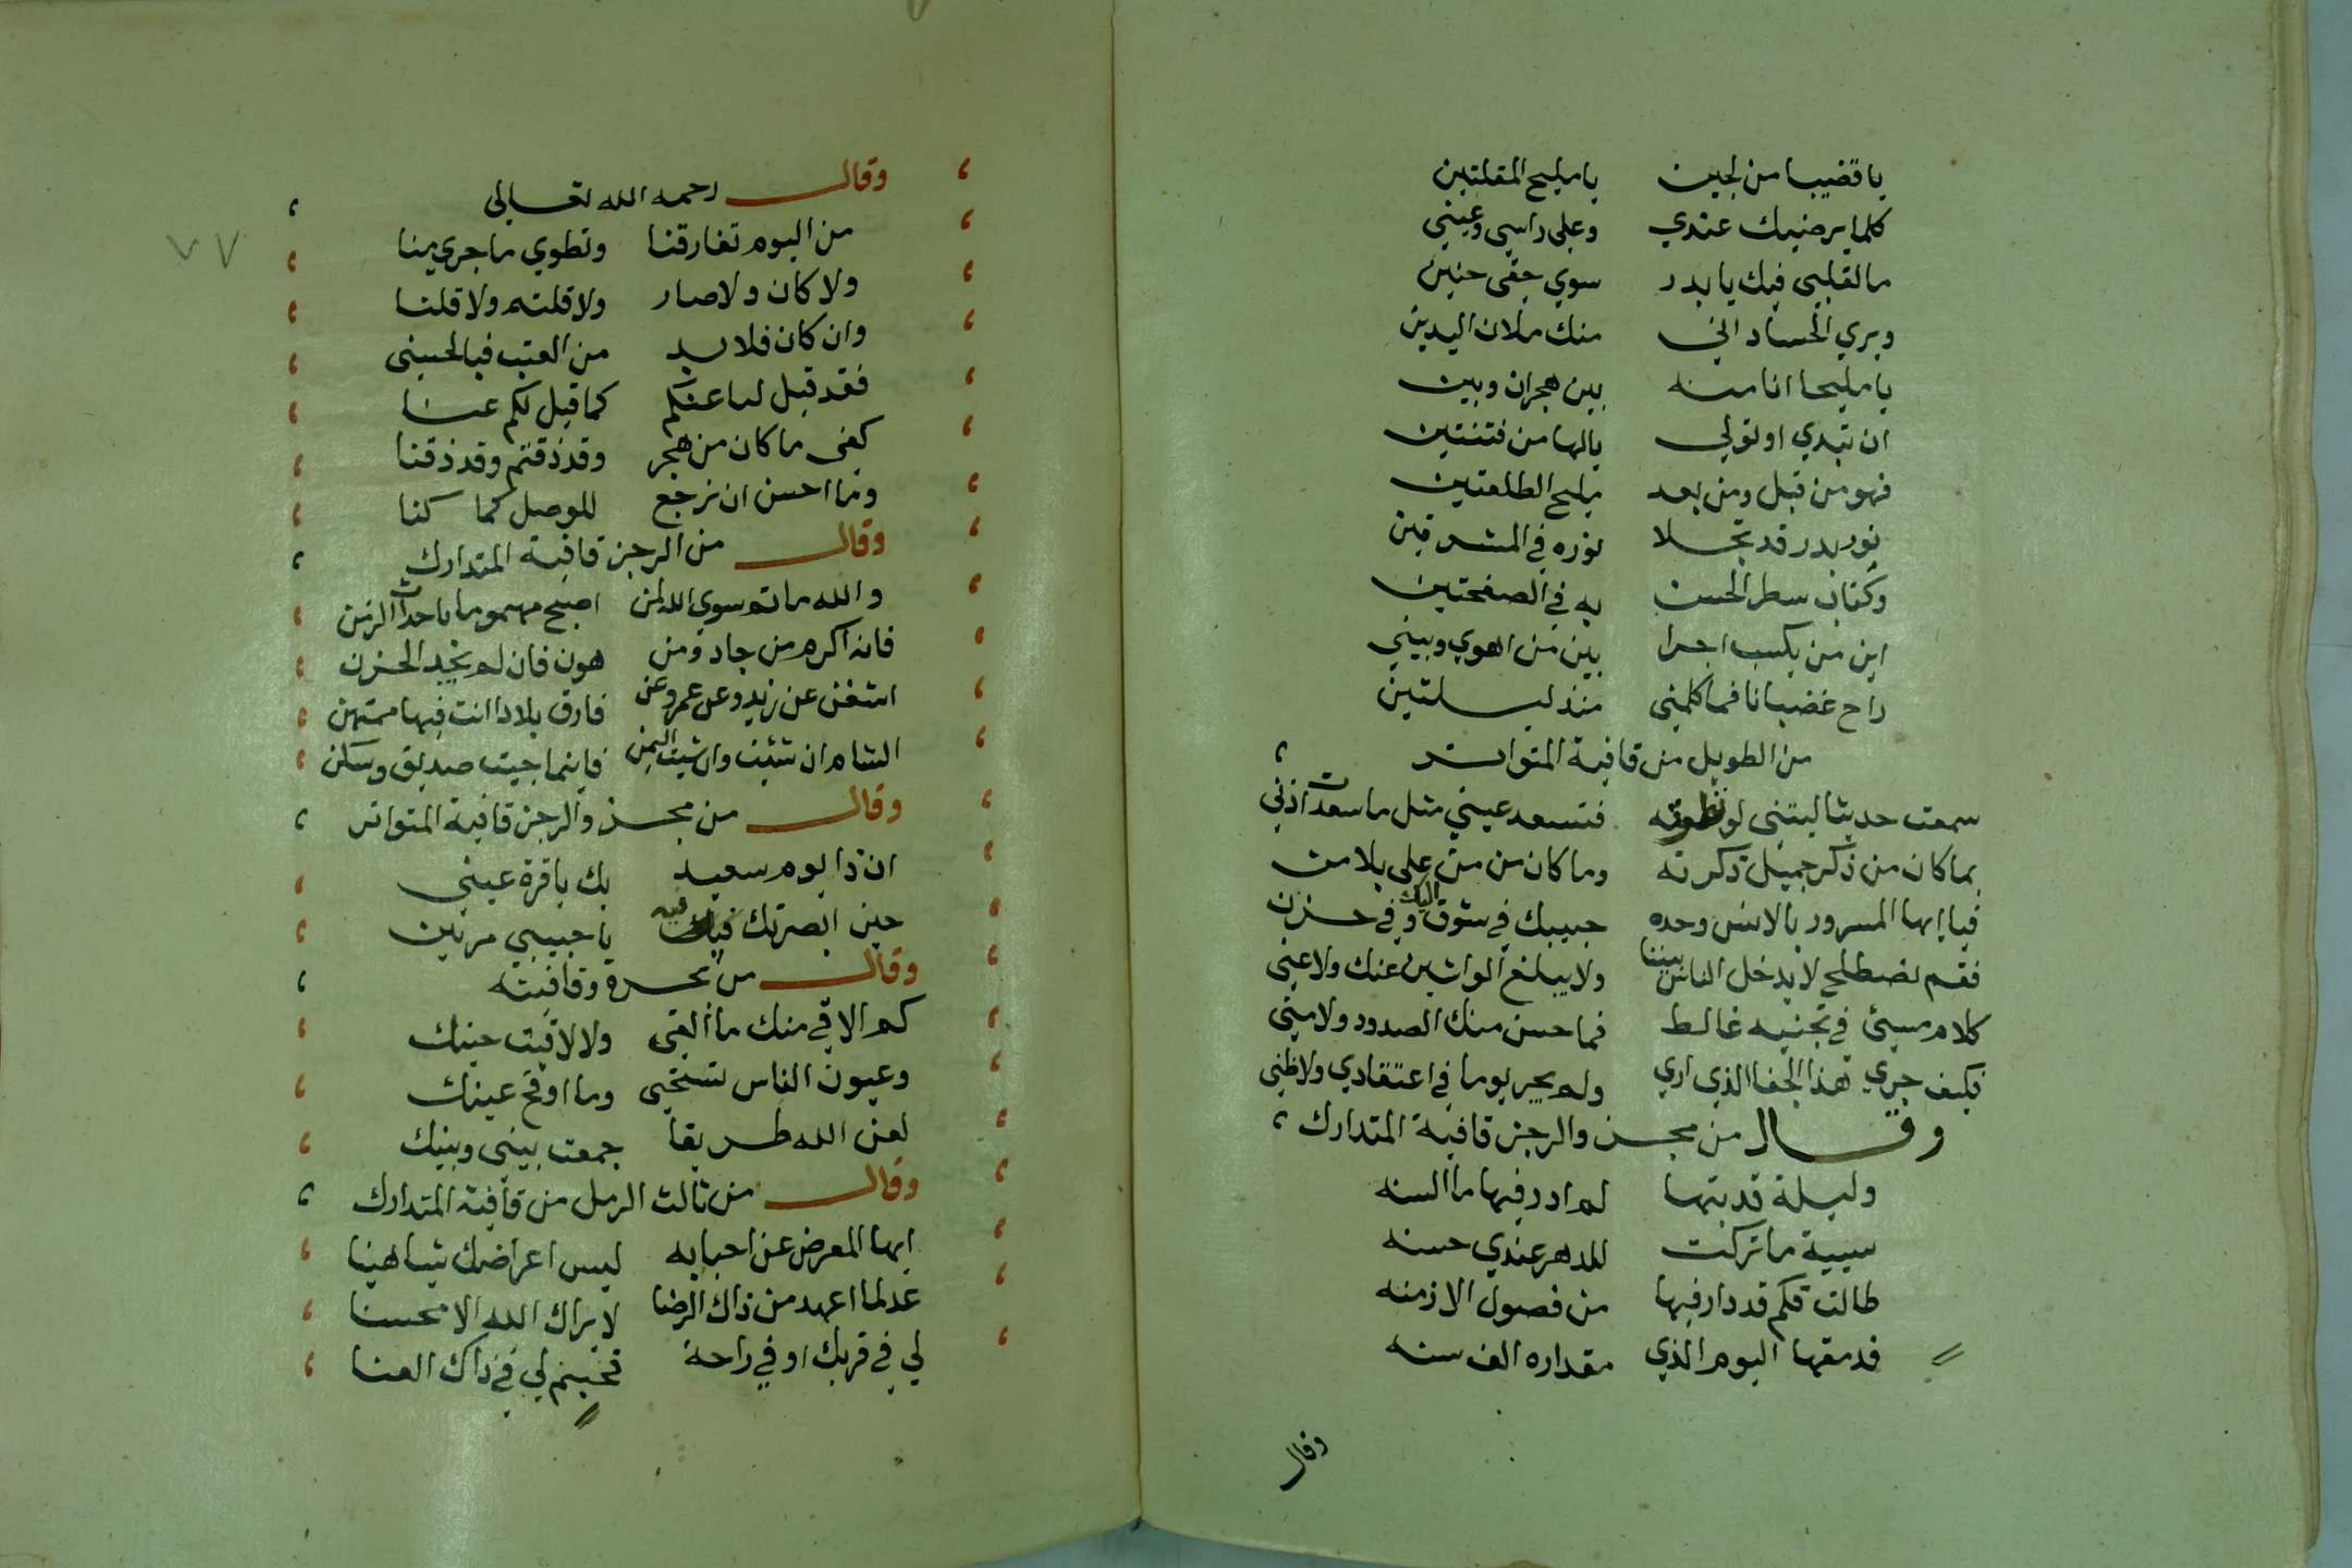 يا قضيبا من لجين يا مليح المقلتين
كلما يرضيك عندي وعلي راسي وعيني
ما لقلبي فيك يا بدر سوي خفي حنين
ويري الحساد اني منك ملان اليدين
يا مليحا انا منه بين هجران وبين
ان تبدي او تولي يالها من فتنتين
فهو من قبل ومن بعد مليح الطلعتين
نور بدر قد تجلا نوره في المشرقين
وكتاب سطر الحسن به في الصفحتين
اين من يكسب اجرا بين من اهوي وبيني
راح غضبانا فما كلمني منذ ليلتين
من الطويل من قافية المتواتر
سمعت حديثا ليتني لو نظرته فتسعد عيني مثل ما سعدت اذني
بما كان من ذكر جميل ذكرته وما كان من من علي بلا من
فيا ايها المسرور بالانس وحده حبيبك في شوق اليك وفي حزن
فقم نصطلح لا يدخل الناس بيننا ولا يبلغ الواشين عنك ولا عني
كلام مسيئ في تجنيه غالط فما حسن منك الصدود ولا مني
فكيف جري هذا الجفا الذي اري ولم يجر يوما في اعتقادي ولا ظني
وقال من مجزو الرجز قافية المتدارك
وليلة قد بتها لم ادر فيها ما السنه
سيية ما تركت للدهر عندي حسنه
طالت فكم قد دار فيها من فصول الازمنه
فدمقها اليوم الذي مقداره الف سنه
وقال
وقال رحمه الله تعالي
من اليوم تفارقنا ونطوي ما جري منا
ولا كان ولا صار ولا قلتم ولا قلنا
وان كان فلا بد من العتب فبالحسني
فقد قيل لنا عنكم كما قيل لكم عنا
كفي ما كان من هجر وقد ذقتم وقد ذقنا
وما احسن ان نرجع للوصل كما كنا
وقال من الرجز قافية المتدارك
والله ما تم سوي الله لمن اصبح مهموما باحداث الزمن
فانه اكرم من جاد ومن هون فان لم يجد الحزن
استغن عن زيد وعن عمرو وعن فارق بلادا انت فيها ممتهن
الشام ان شئت وان شيت اليمن فاينما جيت صديق وسكن
وقال من مجزو الرجز قافية المتواتر
ان ذا يوم سعيد بك يا قرة عيني
حين ابصرتك فيه يا حبيبي مرتين
وقال من بحره وقافيته
كم الاقي منك ما القي ولا لاقيت حينك
وعيون الناس تستحيي وما اوقح عينك
لعن الله طريقا جمعت بيني وبينك
وقال من ثالث الرمل من قافية المتدارك
ايها المعرض عن احبابه ليس اعراضك شيا هينا
عد لما اعهد من ذاك الرضا لا يراك الله الا محسنا
لي في قربك اوفي راحة فجينم لي في ذاك العنا
٧٧